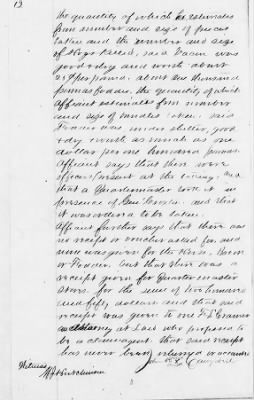 13
the quantity of which he estimates
from number and size of pieces
taken and the number and size
of Hogs killed, said Bacon was
good & dry and worth about
25¢ per pound. about one thousand
pounds fodder. the quantity of which
affiant estimates from number
and size of bundles taken. said
Fodder was under shelter, good
& dry worth as much as one
dollar per one hundred pounds.
Affiant says that there were
officers present at the taking, and
that a Quartermaster took it in
presence of Gen
and that
it was ordered to be taken.
Affiant further says that there was
no receipt or voucher asked for, and
none was given for the Corn, Bacon
or Fodder. but that there was a
receipt given for Quartermaster
Stores for the sum of two hundred
and fifty dollars and that said
receipt was given to one
attorney at Law who professed to
be a claim agent. that said receipt
has never been returned or accounted
Witness
Hutchinson